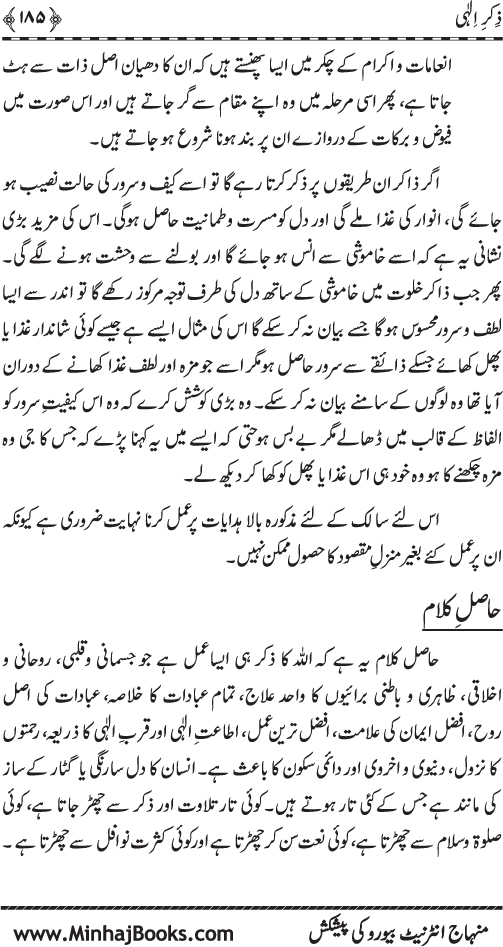 ذِکرِ اِلٰہی ﴿۱۸۵﴾
انعامات و اکرام کے چکر میں ایسا پھنستے ہیں کہ ان کا دھیان اصل ذات سے ہٹ
جاتا ہے، پھر اسی مرحلہ میں وہ اپنے مقام سے گر جاتے ہیں اور اس صورت میں
فیوض و برکات کے دروازے ان پر بند ہونا شروع ہو جاتے ہیں۔
اگر ذاکر ان طریقوں پر ذکر کرتا رہے گا تو اسے کیف و سرور کی حالت نصیب ہو
جائے گی، انوار کی غذا ملے گی اور دل کو مسرت و طمانیت حاصل ہوگی۔ اس کی مزید بڑی
نشانی یہ ہے کہ اسے خاموشی سے انس ہو جائے گا اور بولنے سے وحشت ہونے لگے گی۔
پھر جب ذاکر خلوت میں خاموشی کے ساتھ دل کی طرف توجہ مرکوز رکھے گا تو اندر سے ایسا
لطف و سرور محسوس ہوگا جسے بیان نہ کر سکے گا اس کی مثال ایسے ہے جیسے کوئی شاندار غذا یا
پھل کھائے جسکے ذائقے سے سرور حاصل ہو مگر اسے جو مزہ اور لطف غذا کھانے کے دوران
آیا تھا وہ لوگوں کے سامنے بیان نہ کر سکے۔ وہ بڑی کوشش کرے کہ وہ اس کیفیتِ سرور کو
الفاظ کے قالب میں ڈھالے مگر بے بس ہو حتی کہ ایسے میں یہ کہنا پڑے کہ جس کا جی وہ
مزہ چکھنے کا ہو وہ خود ہی اس غذا یا پھل کو کھا کر دیکھ لے۔
اس لئے سالک کے لئے مذکورہ بالا ہدایات پر عمل کرنا نہایت ضروری ہے کیونکہ
ان پر عمل کئے بغیر منزلِ مقصود کا حصول ممکن نہیں۔
حاصلِ کلام
حاصل کلام یہ ہے کہ اللہ کا ذکر ہی ایسا عمل ہے جو جسمانی و قلبی، روحانی و
اخلاقی، ظاہری و باطنی برائیوں کا واحد علاج، تمام عبادات کا خلاصہ، عبادات کی اصل
روح، افضل ایمان کی علامت، افضل ترین عمل، اطاعتِ الٰہی اور قربِ الٰہی کا ذریعہ، رحمتوں
کا نزول، دنیوی و اخروی اور دائمی سکون کا باعث ہے۔ انسان کا دل سارنگی یا گٹار کے ساز
کی مانند ہے جس کے کئی تار ہوتے ہیں۔ کوئی تار تلاوت اور ذکر سے چھڑ جاتا ہے، کوئی
صلوۃ و سلام سے چھڑتا ہے، کوئی نعت سن کر چھڑتا ہے اور کوئی کثرت نوافل سے چھڑتا ہے۔
منہاج انٹرنیٹ بیورو کی پیشکش www.MinhajBooks.com